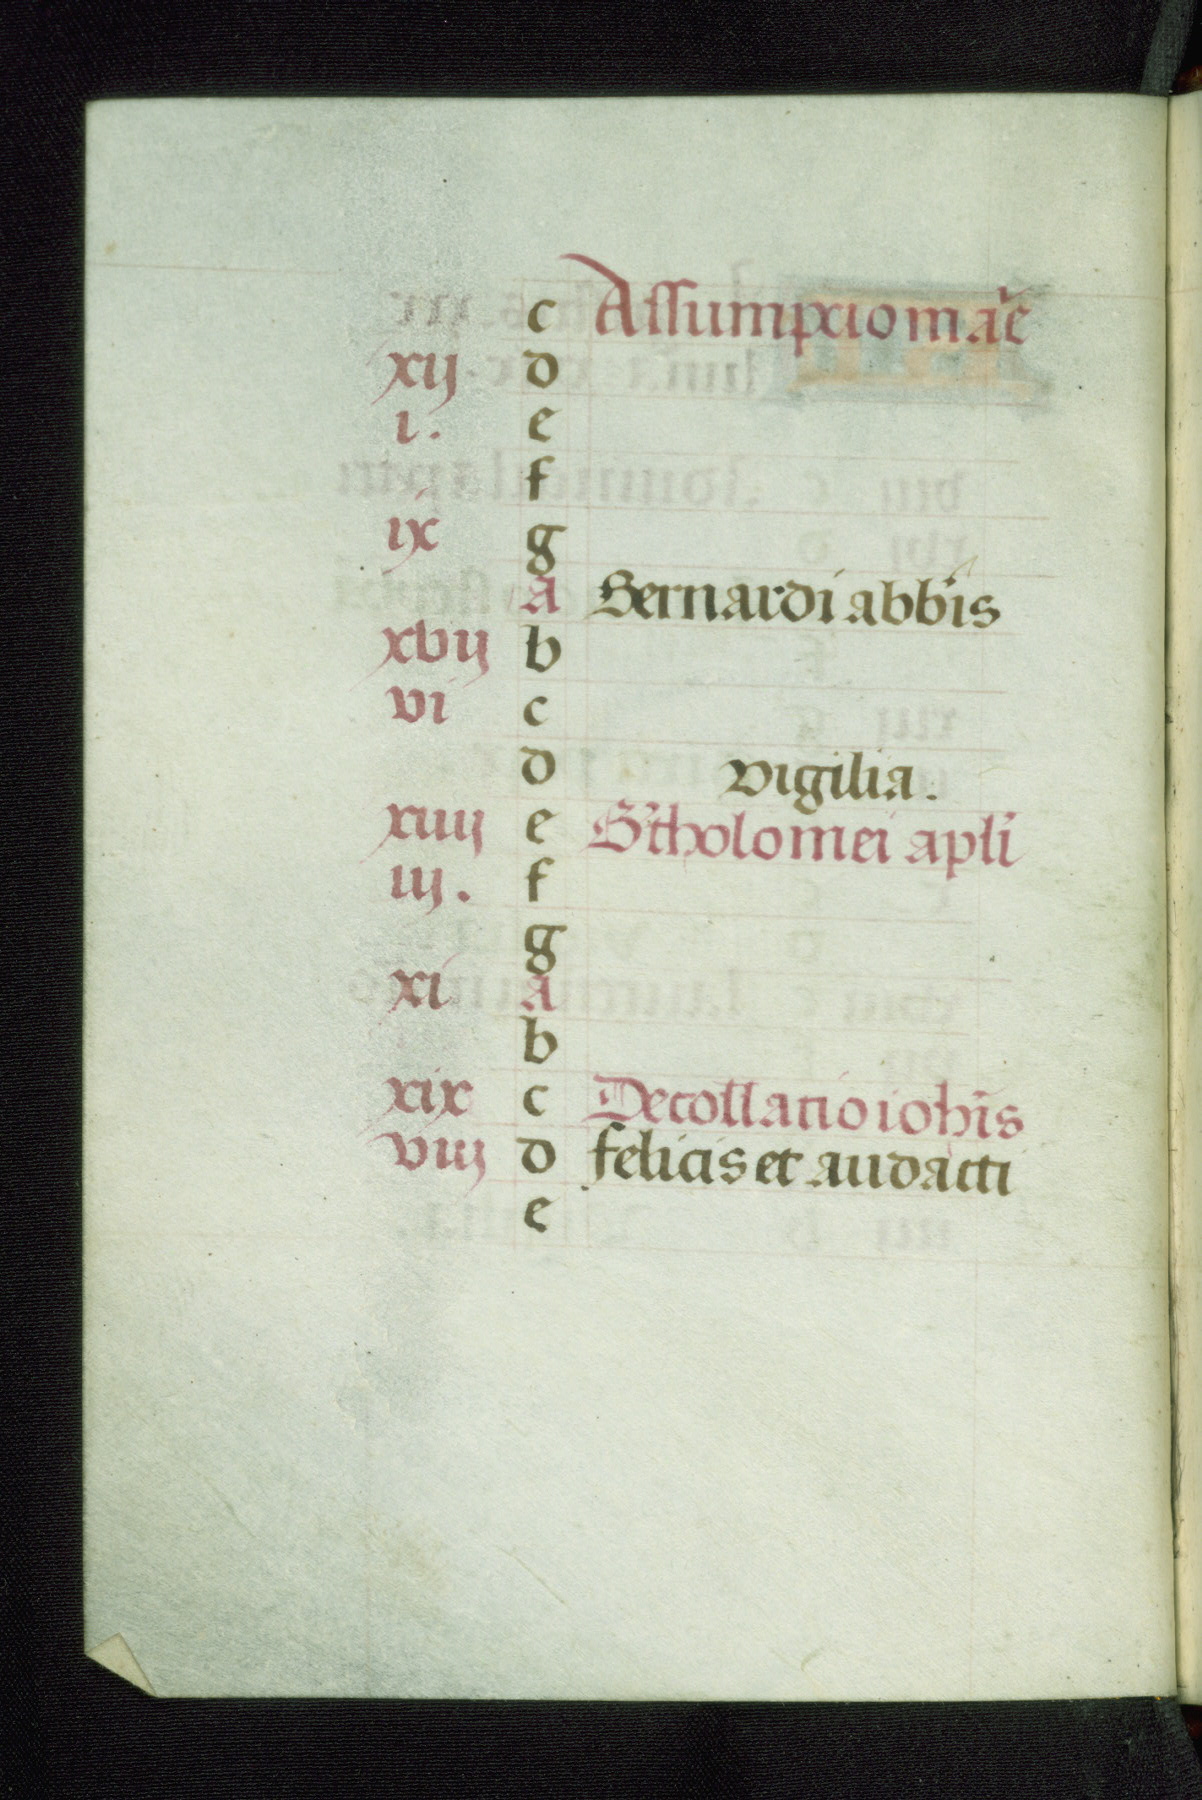 c Assumpcio mar̄e
xij d
i. e
f
ix g
A Bernardi abb̄is
xvij b
vi c
d vigilia.
xiiij e B̄tholomei apl̄i
iij. f
g
xi A
b
xix c Decollatio ioh̄is
viij d felicis et audacti
e